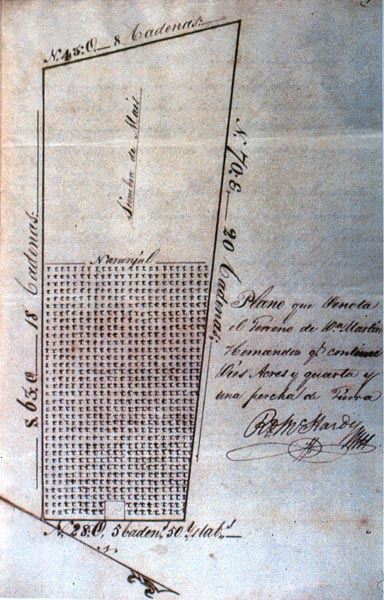 N. 45. O. 8 Cadenas.
Siembra de Maiz
S. 65. O 18 Cadenas.
N. 70. E. 20 Cadenas,
Naranjal
Plano que Denota
el Terreno de Dn. Martin
Hernandez qe. contiene
tres Acres y quarta y
una percha de Tierra
Rt. McHardy
N. 28. O, 5 Caden.s 50. slab.s